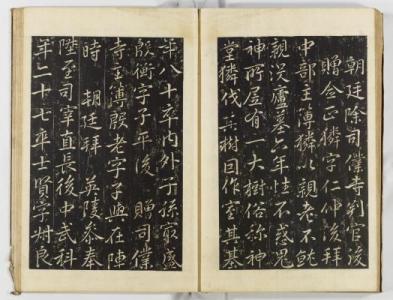 朝廷除司僕寺判官後
贈僉正獜字仁仲後拜
中部主簿獜以親老不就
親歿廬墓六年性不惑鬼
神所居有一大樹俗称神
堂獜伐其樹因作室其基
年八十卒內外子孫最盛
殷衡字子年後 贈司僕
寺主簿殷老字子與在陣
時 朝廷拜 英陵叅奉
陞至司宰直長後中武科
年二十七卒士賢字 良